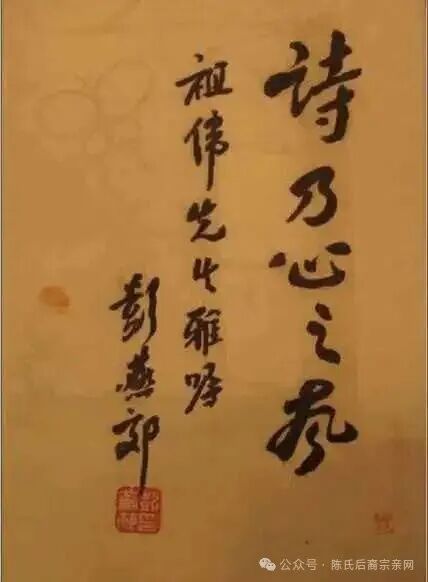 詩乃心之
祖偉先生雅嘱
彭燕郊
公众号 · 陈氏后裔宗亲网